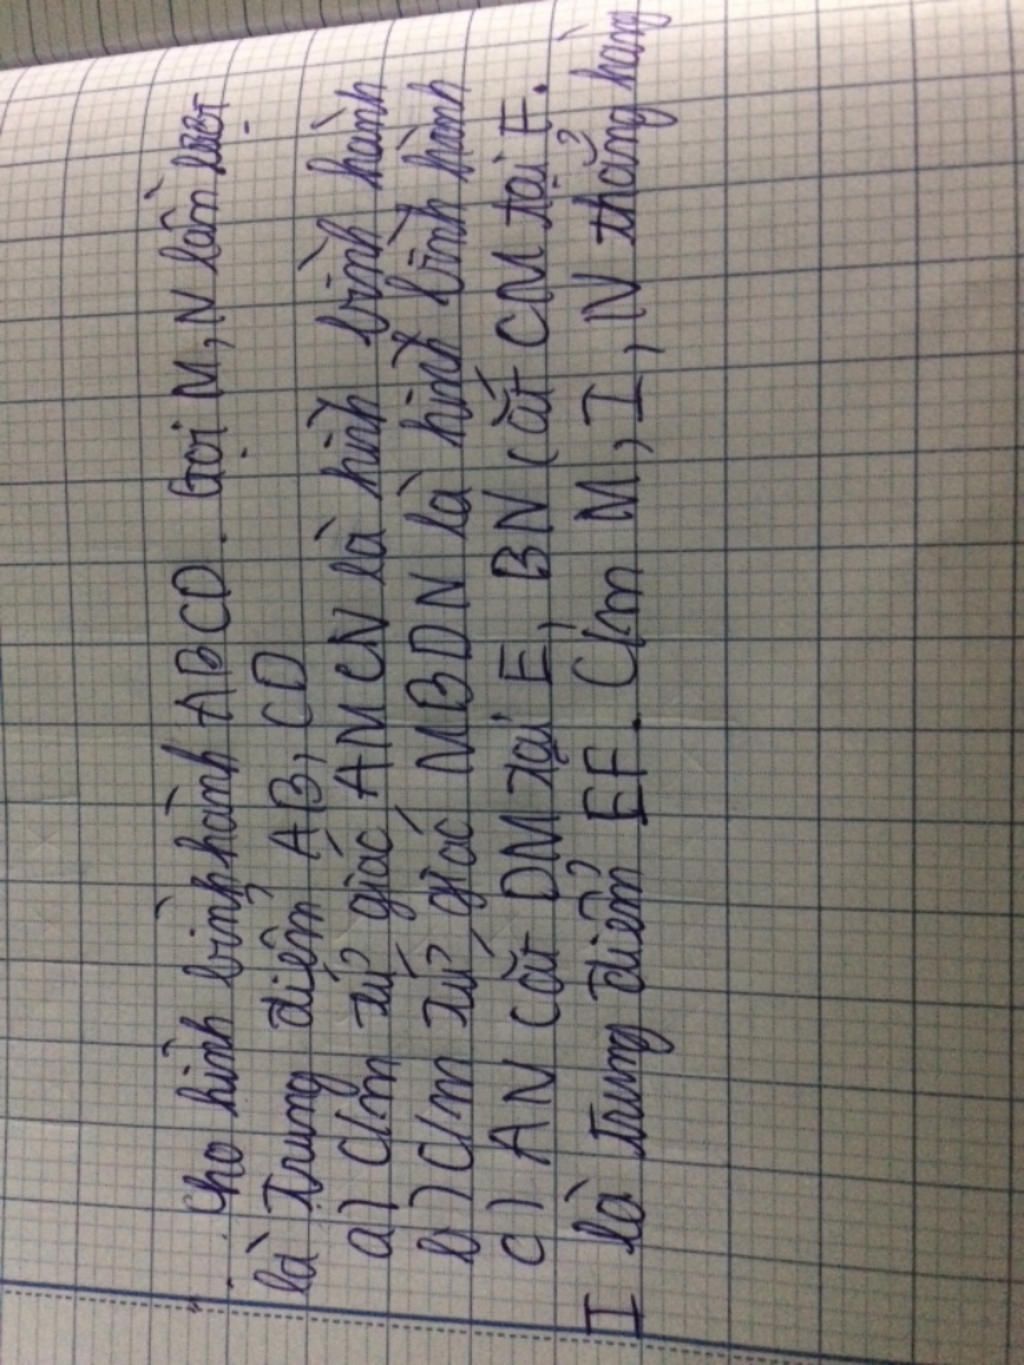 Cho hình bình hành ABCD. Gọi M, N lần lượt
là Trung điểm AB, CD
a) C/m tứ giác AMCN là hình bình hành
b) C/m tứ giác MBDN là hình bình hành
c) AN cắt DM tại E, BN cắt CM tại F.
I là trung điểm EF. C/m M, I, N thẳng hàng